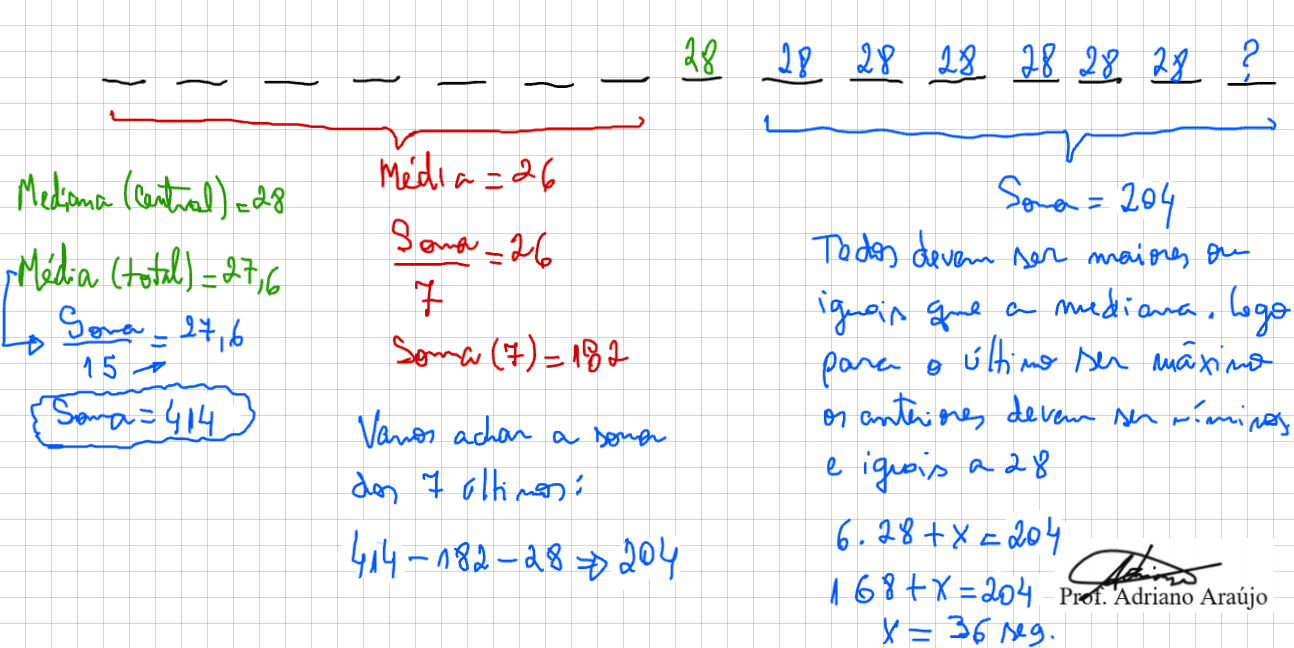 28 28 28 28 28 28 28 ?
Mediana (central) = 28
Média (total) = 27,6
Soma
15
= 27,6
Soma = 414
Média = 26
Soma
7
= 26
Soma (7) = 182
Vamos achar a soma
dos 7 últimos:
414 - 182 - 28 ⇒ 204
Soma = 204
Todos devem ser maiores ou
iguais que a mediana. Logo
para o último ser máximo
os anteriores devem ser mínimos
e iguais a 28
6.28 + x = 204
168 + x = 204
x = 36 seg.
Prof. Adriano Araújo